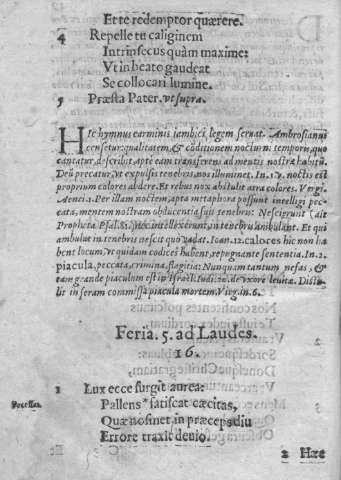 Et te redemptor quærere.
4 Repelle tu caliginem
Intrinsecus quàm maxime:
Vt in beato gaudeat
Se collocari lumine.
5 Præsta Pater. vt supra.
HIc hymnus carminis iambici, legem seruat. Ambrosianus
censetur: qualitatem, & cõditionem nocturni temporis, quo
cantatur, describit, aptè eam transferens ad mentis nostræ habitũ.
Deũ precatur, vt expulsis tenebris, nos illuminet. In.1.v. noctis est
proprium colores abdere. Et rebus nox abstulit atra colores. Vergi.
Aenei.6. Per illam noctem, apta metaphora possunt intelligi pec-
cata, mentem nostram obtucentia suis tenebris: Nescierunt (ait
Propheta Psal.81. nec intellexerunt, in tenebris ambulant. Et qui
ambulat in tenebris nescit quò vadat. Ioan.12. calores hic non ha-
bent locum, vt quidam codices habent, repugnante sententia. In 2.
piacula, peccata, crimina, flagitia: Nunquam tantum nefas, &
tam grande piaculum est in Israël. Iudi.20. de vxore leuitæ. Distu-
lit in seram commissa piacula mortem. Virg. in.6.
Feria. 5. ad Laudes.
16.
1 Lux ecce surgit aurea:
Pallens * fatiscat cæcitas,
Quæ nosmet in præceps diu
Errore traxit deuio.
2 Hæc